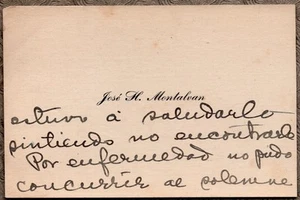 José H. Montalvan
estuvo á saludarlo
sintiendo no encontrarlo
Por enfermedad no pudo
concurrir al solemne